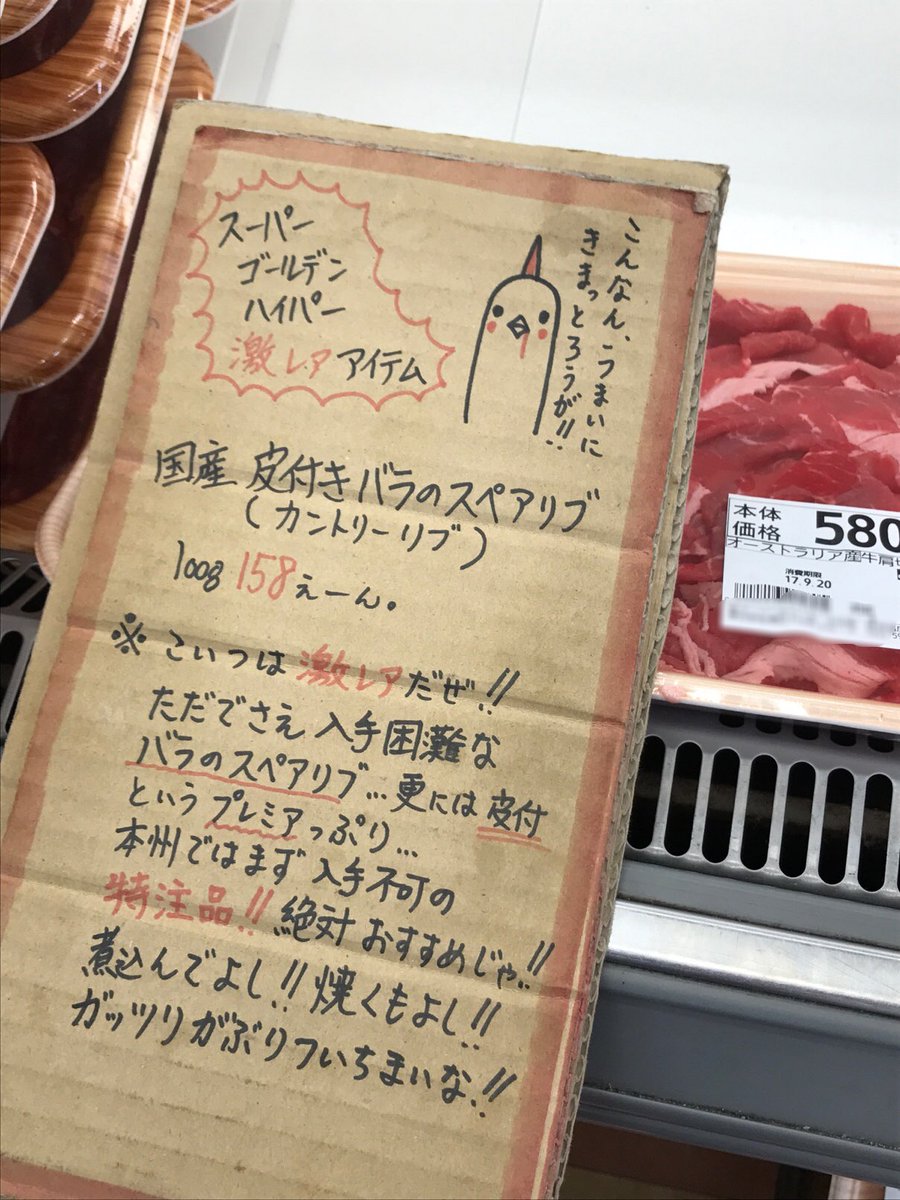 スーパー
ゴールデン
ハイパー
激レアアイテム
こんなん、うまいに
きまっとろうが!!
国産 皮付きバラのスペアリブ
(カントリーリブ)
100g 158えーん。
※ こいつは激レアだぜ!!
ただでさえ入手困難な
バラのスペアリブ…更には皮付
というプレミアっぷり…
本州ではまず入手不可の
特注品!!絶対おすすめじゃ!!
煮込んでよし!!焼くもよし!!
ガッツリがぶりついちまいな!!
本体
価格 580
オーストラリア産牛肩
消費期限
17.9.20